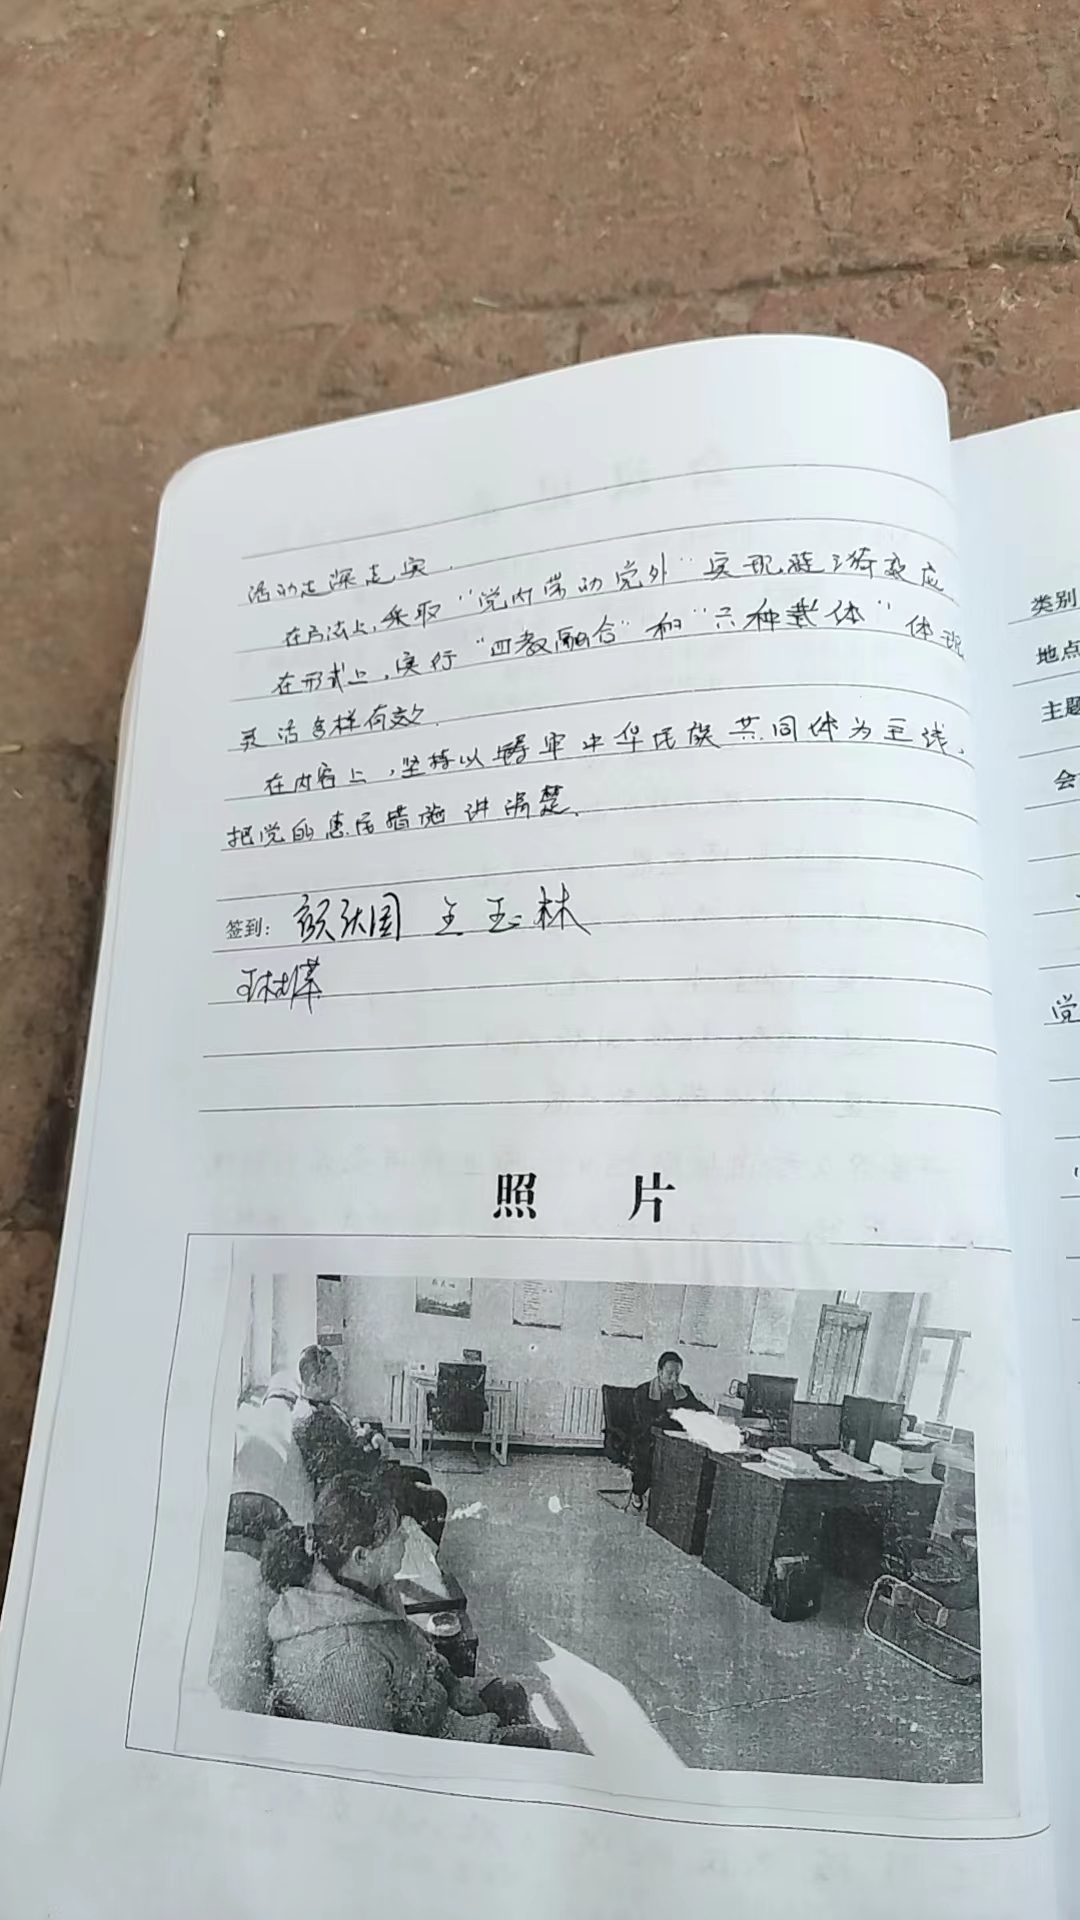 活动走深走实.
在方法上,采取"党内带动党外"实现涟漪效应
在形式上,实行"四教融合"和"六种载体"体现
灵活多样有效.
在内容上,坚持以铸牢中华民族共同体为主线,
把党的惠民措施讲清楚.
签到: 王玉林
照 片
类别
地点
主题
会
党